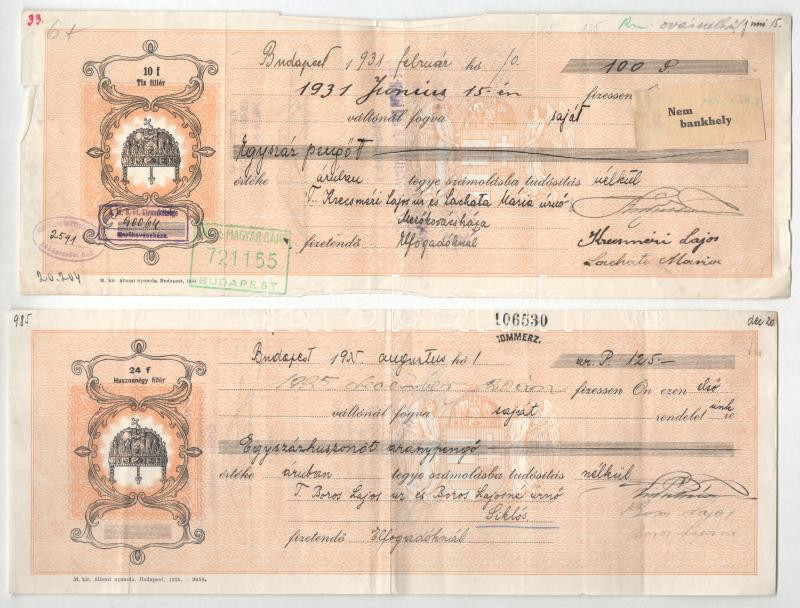 33.
6+
juni 15.
10 f
Tiz fillér
Budapest 1931 február hó 10. 100 P.
1931 Junius 15-én fizessen
váltónál fogva saját
Nem
bankhely
Egyszáz pengőt
értéke áruban tegye számolásba tudósitás nélkül
T. Krecsméri Lajos úr és Lachata Maria úrnő
Mezőkovácsháza
fizetendő Elfogadóknál
Kresméri Lajos
Lachata Maria
46064
2591
20.204
MAGYAR
721155
BUDAPEST
M. kir. állami nyomda. Budapest, 19
985
106530
COMMERZ.
dec 20
24 f
Huszonnégy fillér
Budapest 1935 augusztus hó 1 ar. P. 125.-
1935 december fizessen Ön ezen első
váltónál fogva saját rendeletünkre
Egyszázhuszonöt aranypengő
értéke áruban tegye számolásba tudósitás nélkül
T. Boros Lajos úr és Boros Lajosné úrnő
Siklós
fizetendő Elfogadóknál
Boros Lajos
Boros Lajosné
M. kir. állami nyomda. Budapest, 1934. - 9858.